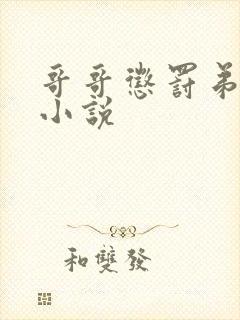 哥哥懲罰弟
小說
和雙發